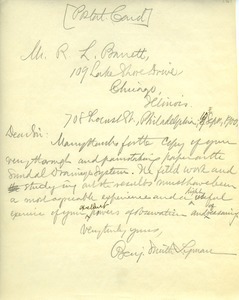 [Postal Card]
Mr. R. L. Bennett,
109 Lake Shore Drive
Chicago,
Illinois.
708 Locust St., Philadelphia, Sept., 1900.
Dear Sir:
Many thanks for the copy of your
very thorough and painstaking paper on the
System. The field work and
studying out results must have been
a most agreeable experience and a useful
exercise of your powers of observation and reasoning
Very truly yours,
Benj. Smith Lyman.